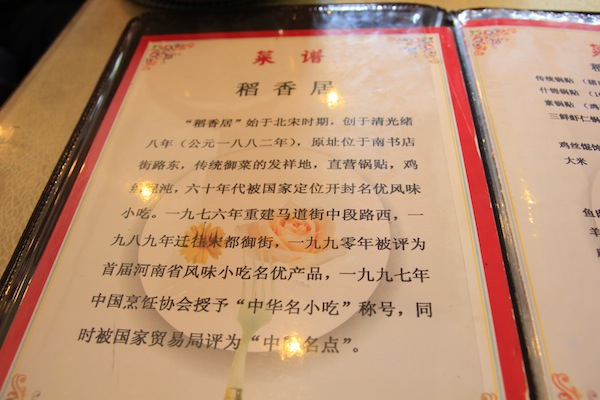 菜谱
稻香居
“稻香居”始于北宋时期，创于清光绪
八年（公元一八八二年），原址位于南书店
街路东，传统御菜的发祥地，直营锅贴，鸡
丝馄饨，六十年代被国家定位开封名优风味
小吃。一九七六年重建马道街中段路西，一
九八九年迁往宋都御街，一九九零年被评为
首届河南省风味小吃名优产品，一九九七年
中国烹饪协会授予“中华名小吃”称号，同
时被国家贸易局评为“中国名点”。
菜
稻
传统锅贴（猪
什锦锅贴（1
素锅贴（鸡
三鲜虾仁锅
鸡丝馄饨
大米
鱼
羊